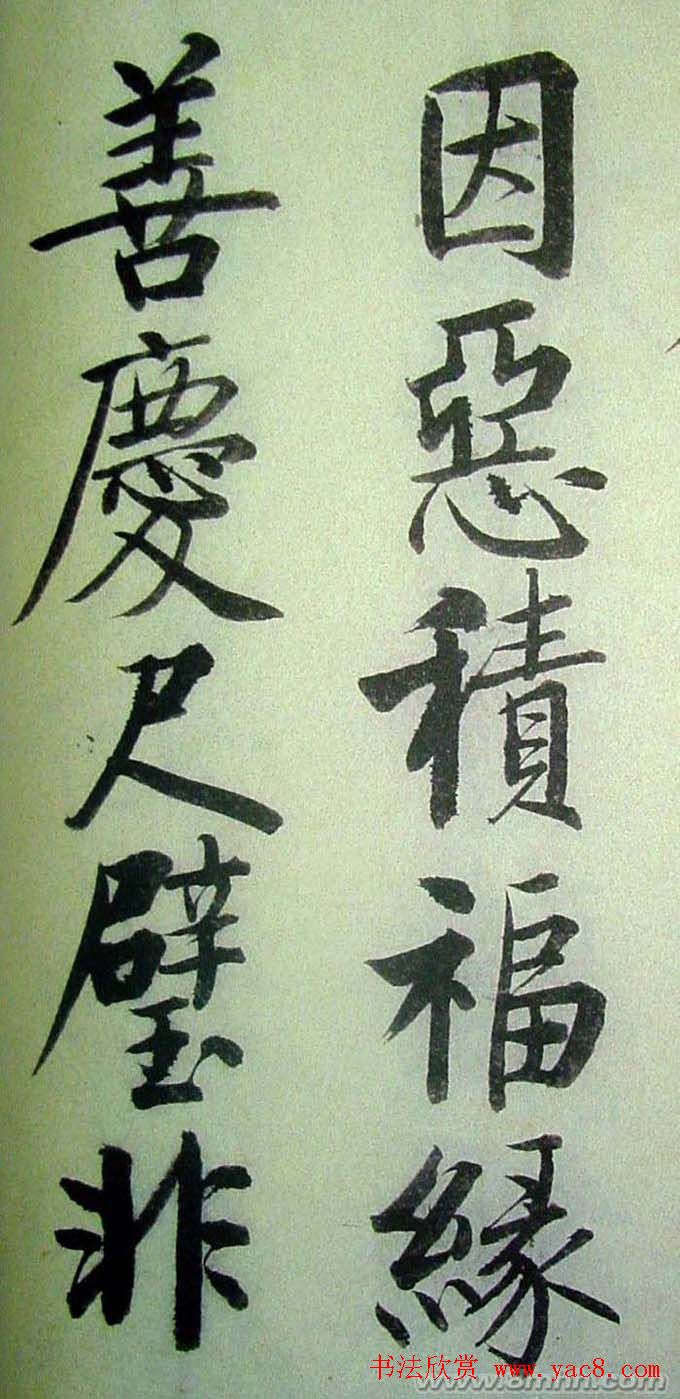 因惡積福緣
善慶尺璧非
书法欣赏 www.yac8.com